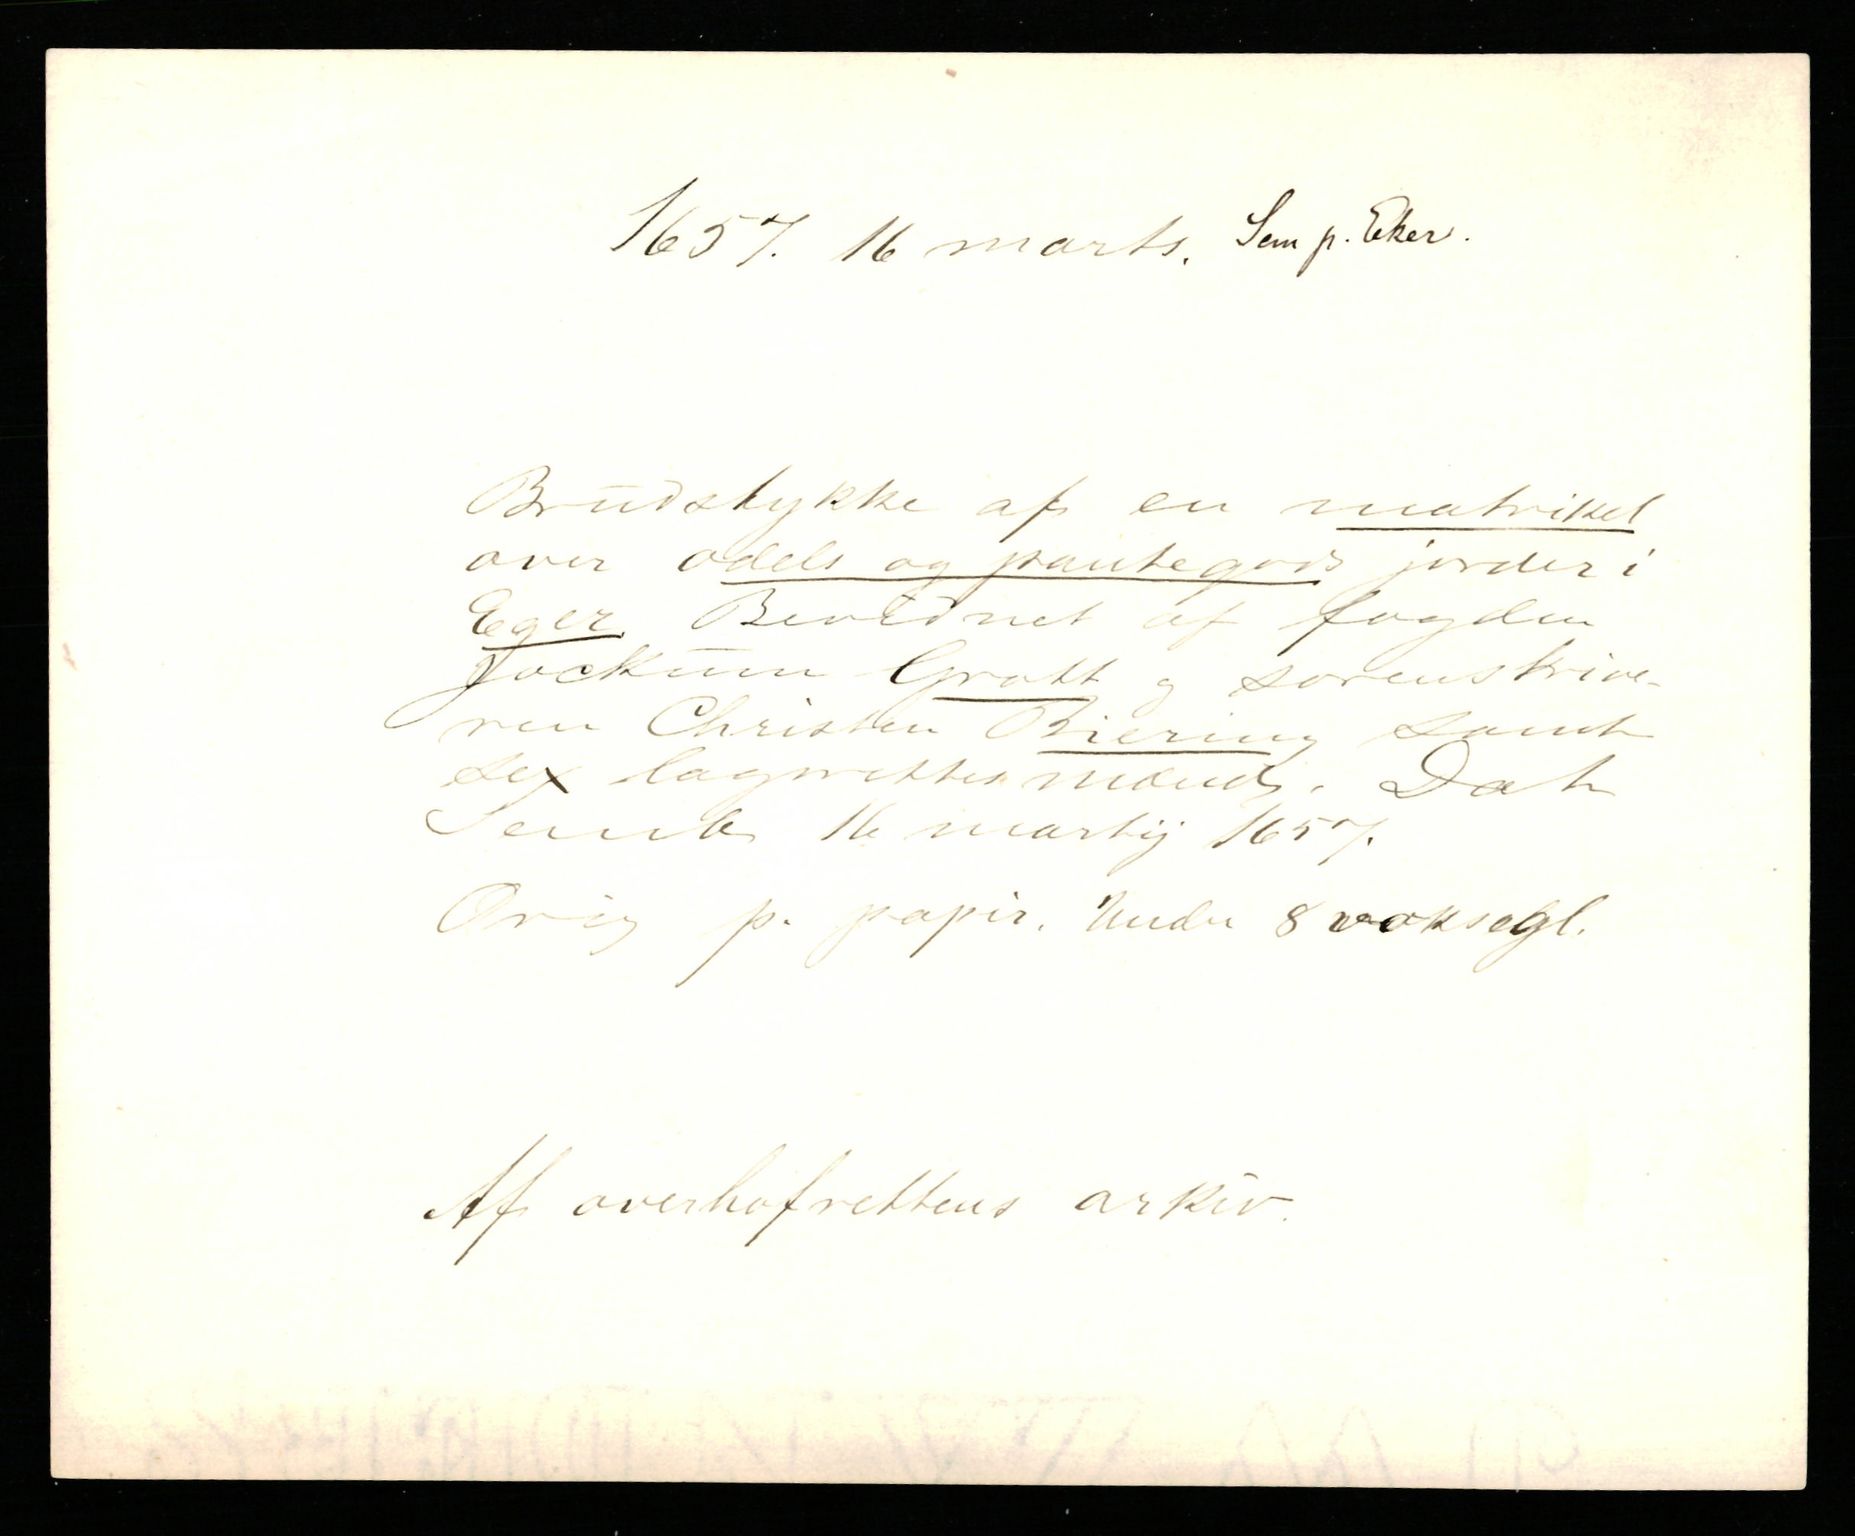 1657. 16 marts. Sem p. Eker.
Brudstykke af en matrikel
over odels og pantegods jorder i
Eger. Bevidnet af fogden
Jockum Grott og sorenskrive-
ren Christen Biering samt
sex lagrettesmænd. Dat
Semb 16 martij 1657.
Orig p. papir. Under 8 voksegl.
Af overhofrettens arkiv.